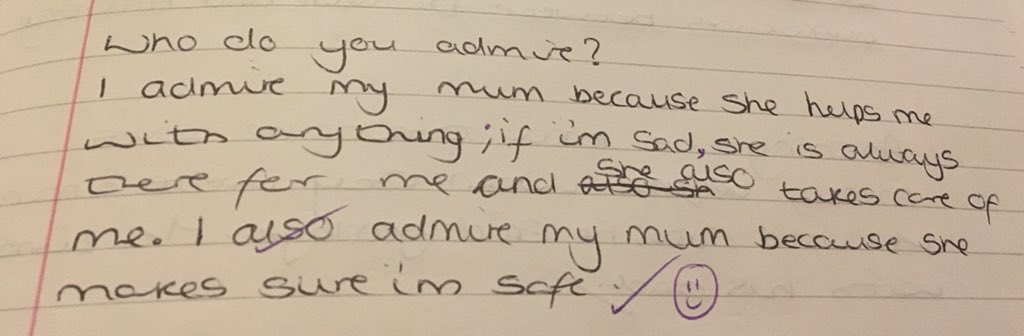 Who do you admire?
I admire my mum because she helps me
with anything; if i'm sad, she is always
there for me and she also takes care of
me. I also admire my mum because she
makes sure i'm safe.